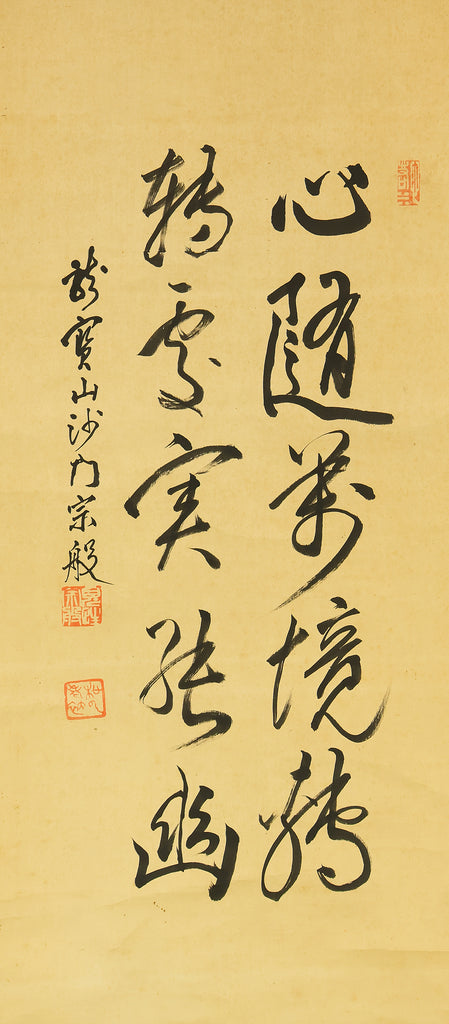 心随萬境轉
轉處実能幽
龍寶山沙門宗般